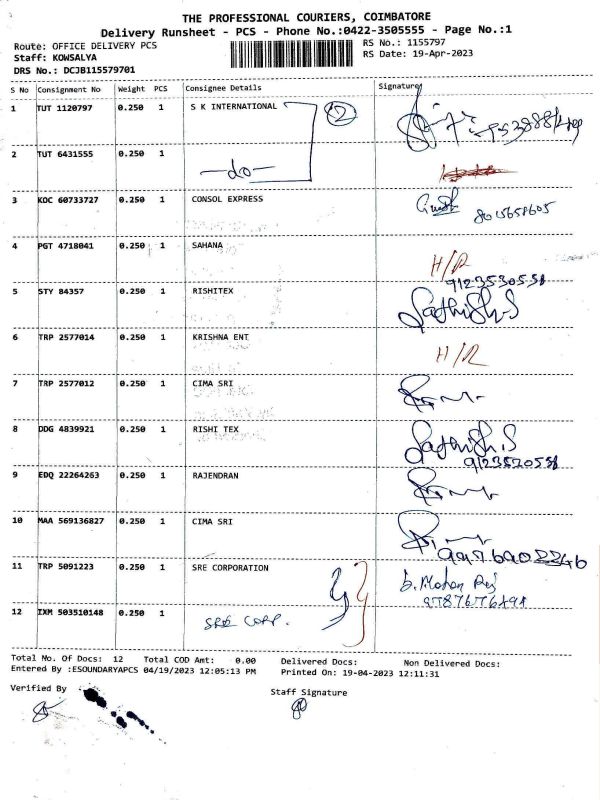 THE PROFESSIONAL COURIERS, COIMBATORE
Delivery Runsheet - PCS - Phone No.:0422-3505555 - Page No.:1
Route: OFFICE DELIVERY PCS
RS No.: 1155797
Staff: KOWSALYA
RS Date: 19-Apr-2023
DRS No.: DCJB115579701
S No Consignment No Weight PCS Consignee Details Signature
1 TUT 1120797 0.250 1 S K INTERNATIONAL 2
2 TUT 6431555 0.250 1 —do—
3 KOC 60733727 0.250 1 CONSOL EXPRESS
4 PGT 4718041 0.250 1 SAHANA H/R
9123530558
5 STY 84357 0.250 1 RISHITEX Sathish.S
6 TRP 2577014 0.250 1 KRISHNA ENT H/R
7 TRP 2577012 0.250 1 CIMA SRI
8 DDG 4839921 0.250 1 RISHI TEX Sathish.S
9123520558
9 EDQ 22264263 0.250 1 RAJENDRAN
10 MAA 569136827 0.250 1 CIMA SRI
11 TRP 5091223 0.250 1 SRE CORPORATION b. Mohan Raj
12 IXM 503510148 0.250 1 SRE CORP.
Total No. Of Docs: 12 Total COD Amt: 0.00 Delivered Docs: Non Delivered Docs:
Entered By :ESOUNDARYAPCS 04/19/2023 12:05:13 PM Printed On: 19-04-2023 12:11:31
Verified By Staff Signature